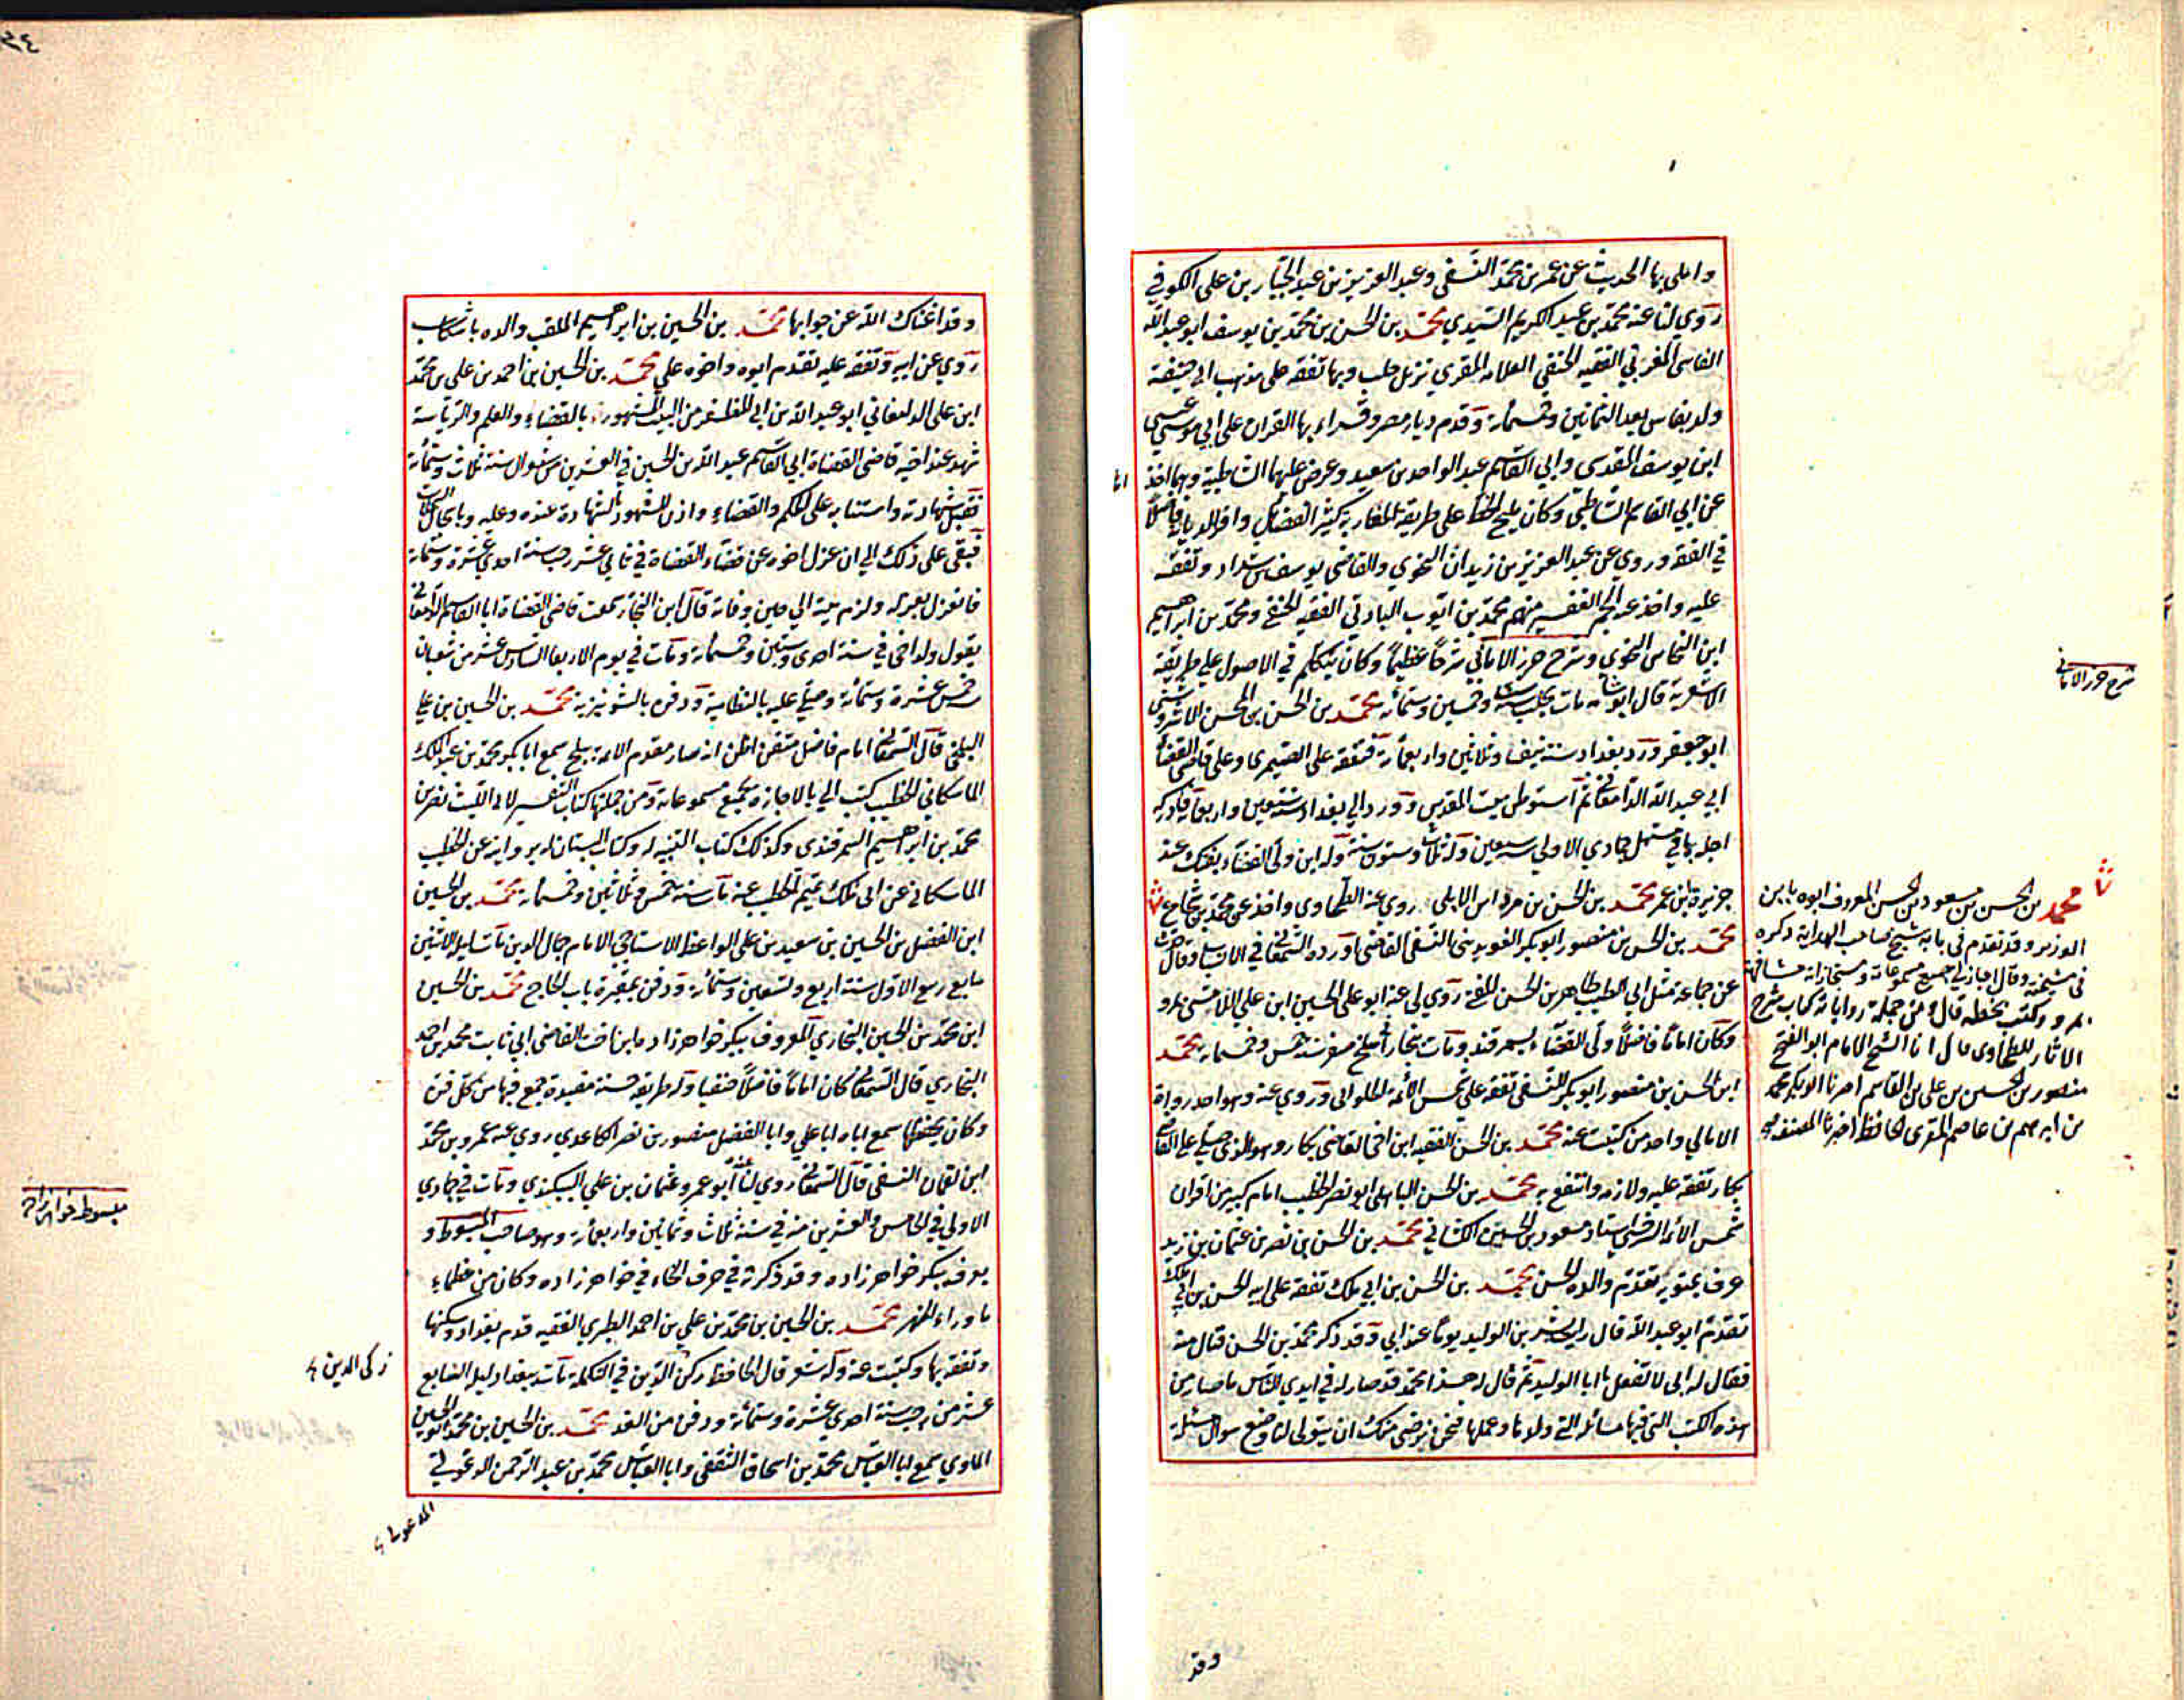 واملى بها الحديث عن عمر بن محمد النسفي وعبد العزيز بن عبد الجبار بن علي الكوفي
روى لنا عنه محمد بن عبد الكريم السيدي محمد بن الحسن بن محمد بن يوسف ابو عبد الله
الفاسي المغربي الفقيه الحنفي العلامه المقري نزيل حلب وبها تفقه على مذهب ابي حنيفة
ولد بفاس بعد الثمانين وخمسمائة وقدم ديار مصر وقراء بها القران على ابي موسى عيسى
ابن يوسف المقدسي وابي القاسم عبد الواحد بن سعيد وعرض عليهما الشاطبية وهما اخذا
عن ابي القاسم الشاطبي وكان مليح الخط على طريقة المغاربة كثير الفضايل وافر الديانة فاضلًا
في الفقه وروي عن عبد العزيز بن زيدان النحوي والقاضي يوسف بن شداد وتفقه
عليه واخذ عنه الجم الغفير منهم محمد بن ايوب البادني الفقيه الحنفي ومحمد بن ابراهيم
ابن النحاس النحوي وشرح حرز الاماني شرحًا عظيمًا وكان يتكلم في الاصول على طريقة
الاشعرية قال ابو شامه مات بحلب سنة ست وخمسين وستمائة محمد بن الحسن بن الحسن الاشروشني
ابو جعفر ورد بغداد سنة نيف وثلاثين واربعمائة فتفقه على الصيمري وعلى قاضي القضاة
ابي عبد الله الدامغاني ثم استوطن بيت المقدس وورد الى بغداد سنة سبعين واربعمائة فادركه
اجله بها في مستهل جمادي الاولى سنة سبعين وله ثلاث وستون سنة وله ابن ولي القضاء بعنك عند
جزيرة ابن عمر محمد بن الحسن بن مرداس الابلي روي عنه الطحاوي واخذ عن محمد بن شجاع
محمد بن الحسن بن منصور ابو بكر الغوبديني النسفي القاضي اورده السمعاني في الانساب وقال حدث
عن جماعة مثل ابي الطيب طاهر بن الحسن الفقيه روي لي عنه ابو علي الحسين ابن علي اللامشي بمرو
وكان امامًا فاضلًا ولي القضاء بسمرقند ومات ببخارا سلخ صفر سنة خمس وخمسمائة محمد
ابن الحسن بن منصور ابو بكر النسفي تفقه على شمس الأئمة الحلواني وروي عنه وهو احد رواة
الامالي واحد من كتبت عنه محمد بن الحسن الفقيه ابن اخي القاضي بكار وهو الذي صلى على القاضي
بكار تفقه عليه ولازمه وانتفع به محمد بن الحسن الباهلي ابو نصر الخطيب امام كبير من اقران
شمس الأئمة السرخسي استاد مسعود بن الحسين الكشاني محمد بن الحسن بن نصر بن عثمان بن زيد
عرف بمتويه تقدم والده الحسن محمد بن الحسن بن ابي ملك تفقه على ابيه الحسن بن ابي ملك
تقدم ابو عبد الله قال رايت بشر بن الوليد يومًا عند ابي وقد ذكر محمد بن الحسن فنال منه
فقال له ابي لا تفعل يا ابا الوليد ثم قال له هذا محمد قد صار له في ايدي الناس ما صار من
هذه الكتب التي فيها مسائله التي ولدها وعملها فنحن نرضى منك ان تتولى لنا وضع سوال مسئلة
شرح حرز الاماني
محمد بن الحسن بن مسعود بن الحسن المعروف ابوه بابن
الوزير وقد تقدم في بابه شيخ صاحب الهداية ذكره
في مشيخته وقال اجاز لي جميع مسموعاته ومستجازاته مشافهة
بمرو وكتب بخطه قال ومن جملة رواياته كتاب شرح
الاثار للطحاوي قال انا الشيخ الامام ابو الفتح
منصور بن الحسين بن علي بن القاسم اخبرنا ابو بكر محمد
بن ابرهيم بن عاصم المقري الحافظ اخبرنا المصنف
وقد
وقد اغناك الله عن جوابها محمد بن الحسين بن ابراهيم الملقب والده باشكاب
روي عن ابيه وتفقه عليه تقدم ابوه واخوه علي محمد بن الحسين بن احمد بن علي بن محمد
ابن علي الدامغاني ابو عبد الله بن ابي المظفر من البيت المشهور بالقضاء والعلم والرياسة
شهد عند اخيه قاضي القضاة ابي القاسم عبد الله بن الحسين في العشرين من شوال سنة ثلاث وستمائة
فقبل شهادته واستنابه على الحكم والقضاء واذن للشهود بالشهادة عنده وعليه
فبقى على ذلك الى ان عزل اخوه عن قضاء القضاة في ثاني عشر رجب سنة احدى عشرة وستمائة
فانعزل بعزله ولزم بيته الى حين وفاته قال ابن النجار سمعت قاضي القضاة ابا القاسم الدامغاني
يقول ولد اخي في سنة احدى وستين وخمسمائة ومات في يوم الاربعا السادس عشر من شعبان
سنة خمس عشرة وستمائة وصلي عليه بالنظامية ودفن بالشونيزية محمد بن الحسين بن علي
البلخي قال السمعاني امام فاضل متقن اظن انه صار مقدم الائمة ببلخ سمع ابا بكر محمد بن عبد الملك
الماسكاني الخطيب كتب الي بالاجازة بجميع مسموعاته ومن جملتها كتاب التفسير لابي الليث نصر بن
محمد بن ابراهيم السمرقندي وكذلك كتاب التنبيه له وكتاب البستان له بروايته عن الخطيب
الماسكاني عن ابي ملك تميم الخطيب عنه مات سنة خمس وثلاثين وخمسمائة محمد بن الحسين
ابن الفضل بن الحسين بن سعيد بن علي الواعظ الاستاجي الامام جمال الدين مات ليلة الاثنين
سابع ربيع الاول سنة اربع وتسعين وستمائة ودفن بمقبرة باب الحاج محمد بن الحسين
ابن محمد بن الحسين البخاري المعروف ببكر خواهر زاده ابن اخت القاضي ابي ثابت محمد بن احمد
البخاري قال السمعاني كان امامًا فاضلًا حنفيا وله طريقة حسنة مفيدة جمع فيها من كل فن
وكان يحفظها سمع اباه ابا علي وابا الفضل منصور بن نصر الكاغدي روي عنه عمرو بن محمد
ابن لقمان النسفي قال السمعاني روي لنا عنه ابو عمرو عثمان بن علي البيكندي ومات في جمادي
الاولى في الخامس والعشرين منه في سنة ثلاث وثمانين واربعمائة وهو صاحب المبسوط و
يعرف ببكر خواهر زاده وقد ذكرته في حرف الخاء في خواهر زاده وكان من عظماء
ما وراء النهر محمد بن الحسين بن محمد بن علي بن احمد الطبري الفقيه قدم بغداد وسكنها
وتفقه بها وكتبت عنه وله شعر قال الحافظ ركن الدين في التكملة مات ببغداد ليلة السابع
عشر من رجب سنة احدى عشرة وستمائة ودفن من الغد محمد بن الحسين بن محمد بن الحسين
الماوي سمع ابا العباس محمد بن اسحاق الثقفي وابا العباس محمد بن عبد الرحمن الدغولي
مبسوط خواهر زاده
زكي الدين
الدغولي